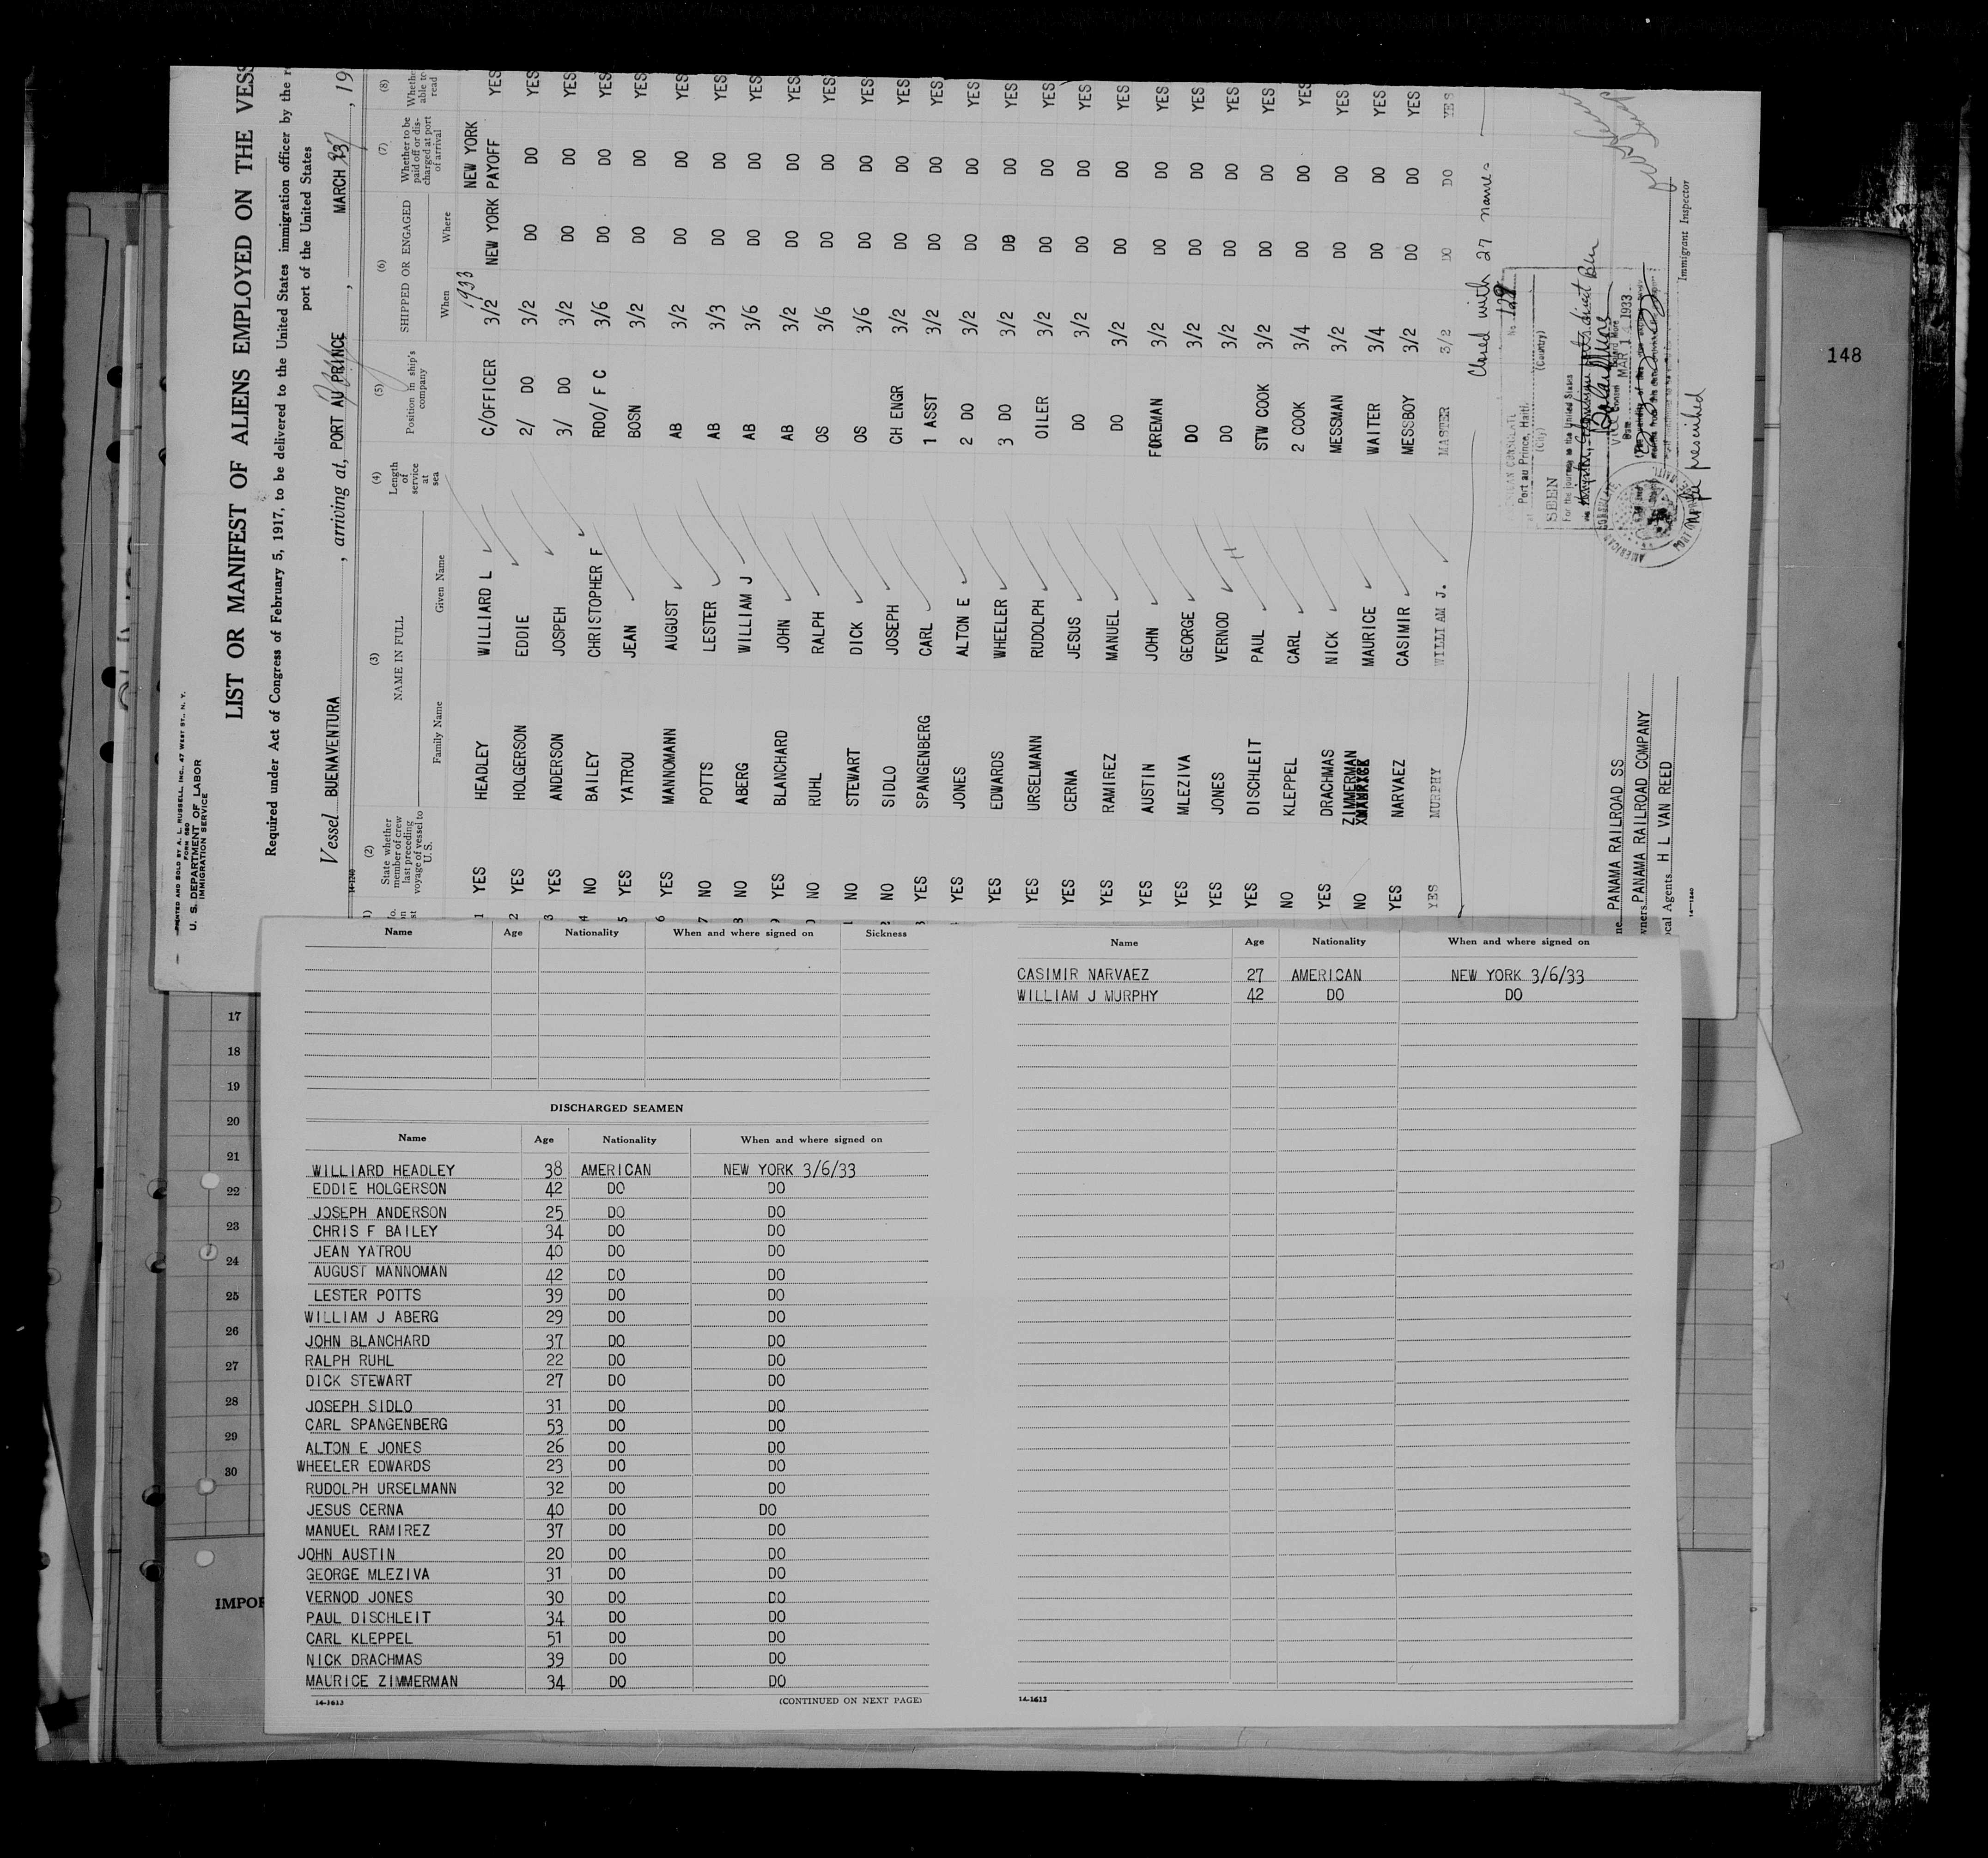 PRINTED AND SOLD BY A. L. RUSSELL, INC., 47 WEST ST., N. Y.
FORM 680
U. S. DEPARTMENT OF LABOR
IMMIGRATION SERVICE
LIST OR MANIFEST OF ALIENS EMPLOYED ON THE VESS
Required under Act of Congress of February 5, 1917, to be delivered to the United States immigration officer by the r
port of the United States
Vessel BUENAVENTURA, arriving at, PORT AU PRINCE, MARCH, 19
14-1240
(2) (3) (4) (5) (6) (7) (8)
State whether member of crew last preceding voyage of vessel to U.S. NAME IN FULL Length of service at sea Position in ship's company SHIPPED OR ENGAGED Whether to be paid off or discharged at port of arrival Whethe able to read
Family Name Given Name When Where
1933 NEW YORK
1 YES HEADLEY WILLIARD L C/OFFICER 3/2 NEW YORK PAYOFF YES
2 YES HOLGERSON EDDIE 2/ DO 3/2 DO DO YES
3 YES ANDERSON JOSPEH 3/ DO 3/2 DO DO YES
4 NO BAILEY CHRISTOPHER F RDO/ F C 3/6 DO DO YES
5 YES YATROU JEAN BOSN 3/2 DO DO YES
6 YES MANNOMANN AUGUST AB 3/2 DO DO YES
7 NO POTTS LESTER AB 3/3 DO DO YES
8 NO ABERG WILLIAM J AB 3/6 DO DO YES
9 YES BLANCHARD JOHN AB 3/2 DO DO YES
0 NO RUHL RALPH OS 3/6 DO DO YES
1 NO STEWART DICK OS 3/6 DO DO YES
2 NO SIDLO JOSEPH CH ENGR 3/2 DO DO YES
3 YES SPANGENBERG CARL 1 ASST 3/2 DO DO YES
YES JONES ALTON E 2 DO 3/2 DO DO YES
YES EDWARDS WHEELER 3 DO 3/2 DO DO YES
YES URSELMANN RUDOLPH OILER 3/2 DO DO YES
YES CERNA JESUS DO 3/2 DO DO YES
YES RAMIREZ MANUEL DO 3/2 DO DO YES
YES AUSTIN JOHN FOREMAN 3/2 DO DO YES
YES MLEZIVA GEORGE DO 3/2 DO DO YES
YES JONES VERNOD DO 3/2 DO DO YES
YES DISCHLEIT PAUL STW COOK 3/2 DO DO YES
NO KLEPPEL CARL 2 COOK 3/4 DO DO YES
YES DRACHMAS NICK MESSMAN 3/2 DO DO YES
NO ZIMMERMAN MAURICE WAITER 3/4 DO DO YES
YES NARVAEZ CASIMIR MESSBOY 3/2 DO DO YES
YES MURPHY WILLIAM J. MASTER 3/2 DO DO YES
Closed with 27 names
Port au Prince, Haiti. No. 128
(City) (Country)
SEEN
For the journey to the United States
MAR 1 1933
no fee prescribed
PANAMA RAILROAD SS
wners PANAMA RAILROAD COMPANY
ocal Agents H L VAN REED
Immigrant Inspector
14-1240
148
17
18
19
20
21
22
23
24
25
26
27
28
29
30
IMPOR
Name Age Nationality When and where signed on Sickness
DISCHARGED SEAMEN
Name Age Nationality When and where signed on
WILLIARD HEADLEY 38 AMERICAN NEW YORK 3/6/33
EDDIE HOLGERSON 42 DO DO
JOSEPH ANDERSON 25 DO DO
CHRIS F BAILEY 34 DO DO
JEAN YATROU 40 DO DO
AUGUST MANNOMAN 42 DO DO
LESTER POTTS 39 DO DO
WILLIAM J ABERG 29 DO DO
JOHN BLANCHARD 37 DO DO
RALPH RUHL 22 DO DO
DICK STEWART 27 DO DO
JOSEPH SIDLO 31 DO DO
CARL SPANGENBERG 53 DO DO
ALTON E JONES 26 DO DO
WHEELER EDWARDS 23 DO DO
RUDOLPH URSELMANN 32 DO DO
JESUS CERNA 40 DO DO
MANUEL RAMIREZ 37 DO DO
JOHN AUSTIN 20 DO DO
GEORGE MLEZIVA 31 DO DO
VERNOD JONES 30 DO DO
PAUL DISCHLEIT 34 DO DO
CARL KLEPPEL 51 DO DO
NICK DRACHMAS 39 DO DO
MAURICE ZIMMERMAN 34 DO DO
14-1613 (CONTINUED ON NEXT PAGE)
Name Age Nationality When and where signed on
CASIMIR NARVAEZ 27 AMERICAN NEW YORK 3/6/33
WILLIAM J MURPHY 42 DO DO
14-1613